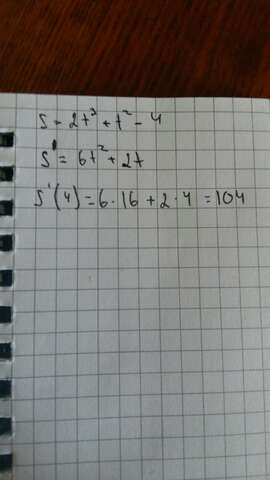 s = 2t³ + t² - 4
s' = 6t² + 2t
s'(4) = 6·16 + 2·4 = 104